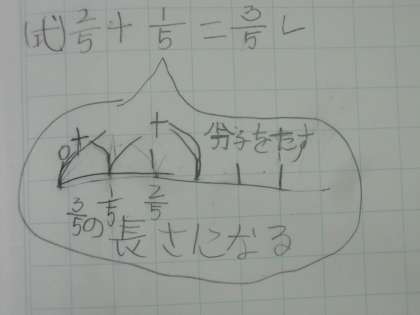 (式) 2/5 + 1/5 = 3/5 L
0 + + 分子をたす
1/5 2/5
3/5の長さになる